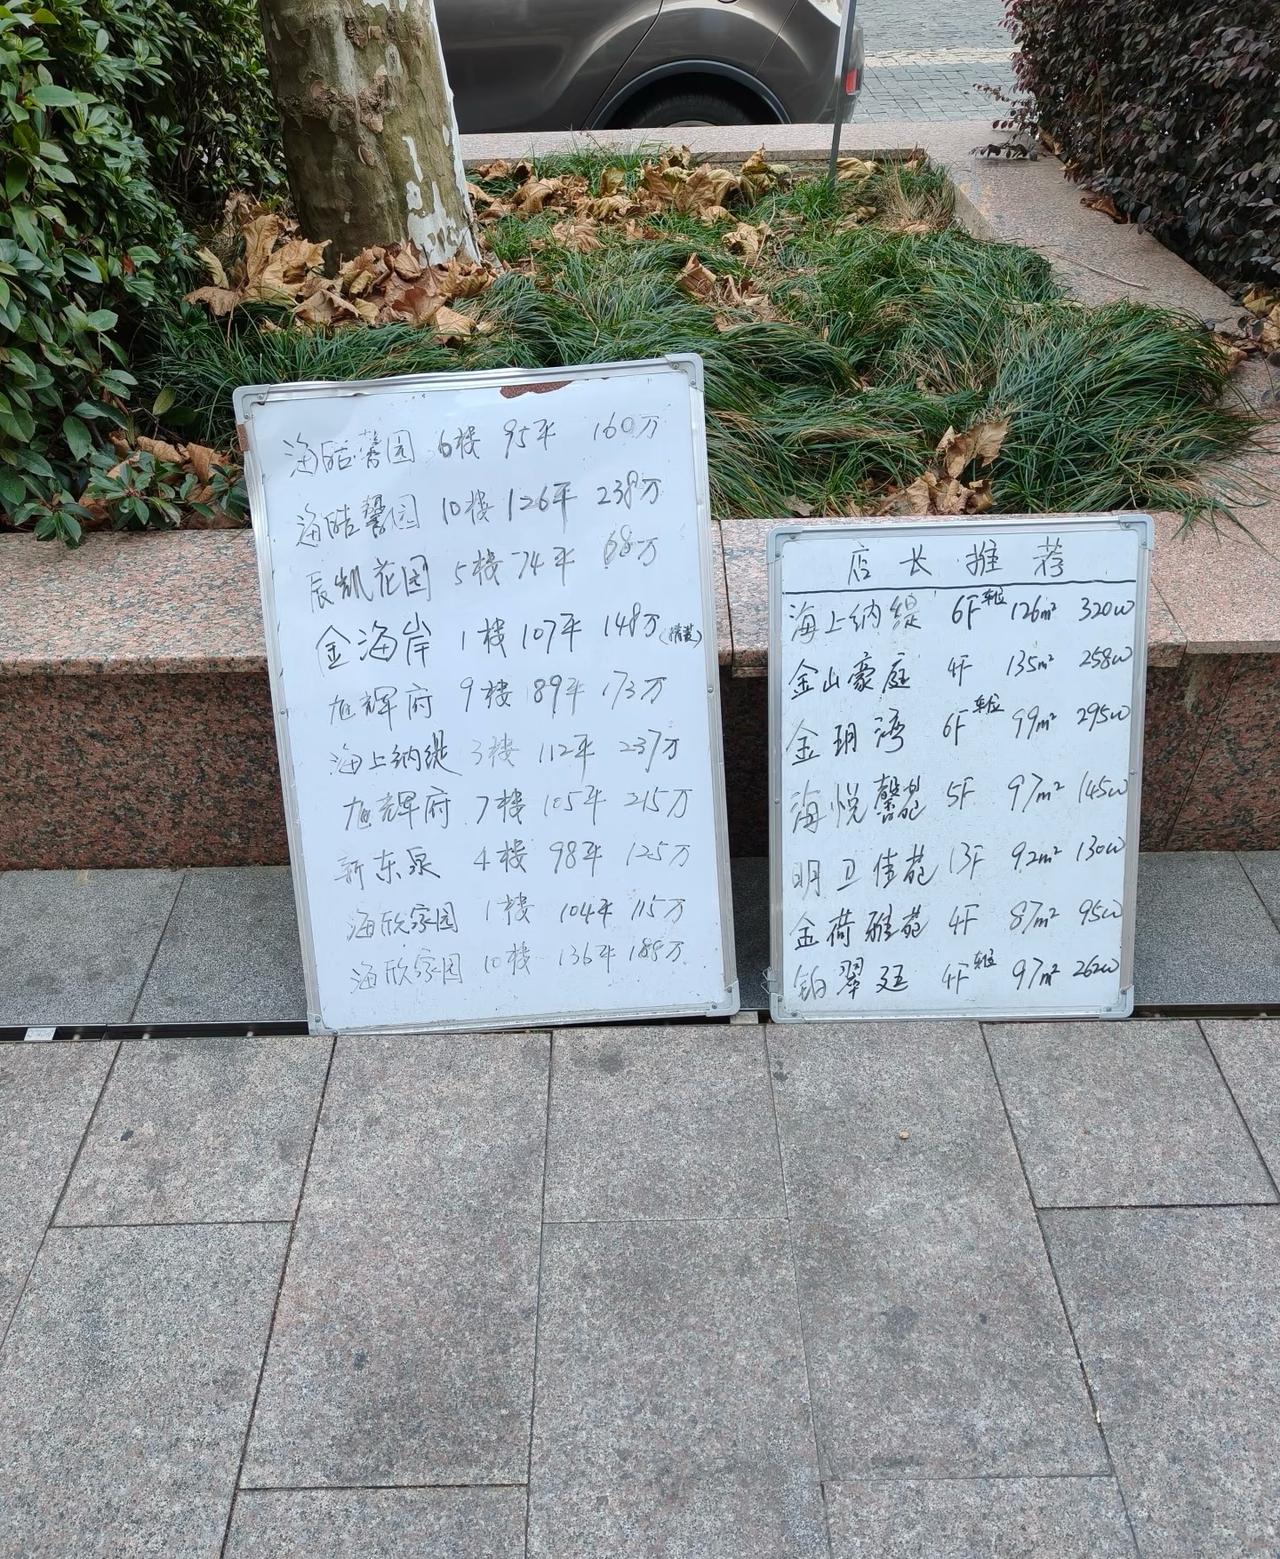 海皓馨园 6楼 95平 160万
海皓馨园 10楼 126平 238万
辰凯花园 5楼 74平 68万
金海岸 1楼 107平 148万(精装)
旭辉府 9楼 89平 173万
海上纳缇 3楼 112平 237万
旭辉府 7楼 105平 215万
新东泉 4楼 98平 125万
海欣家园 1楼 104平 115万
海欣家园 10楼 136平 188万
店长推荐
海上纳缇 6F车位 126m² 320W
金山豪庭 4F 135m² 258W
金玥湾 6F车位 99m² 295W
海悦馨苑 5F 97m² 145W
明卫佳苑 13F 92m² 130W
金荷雅苑 4F 87m² 95W
铂翠廷 4F车位 97m² 262W